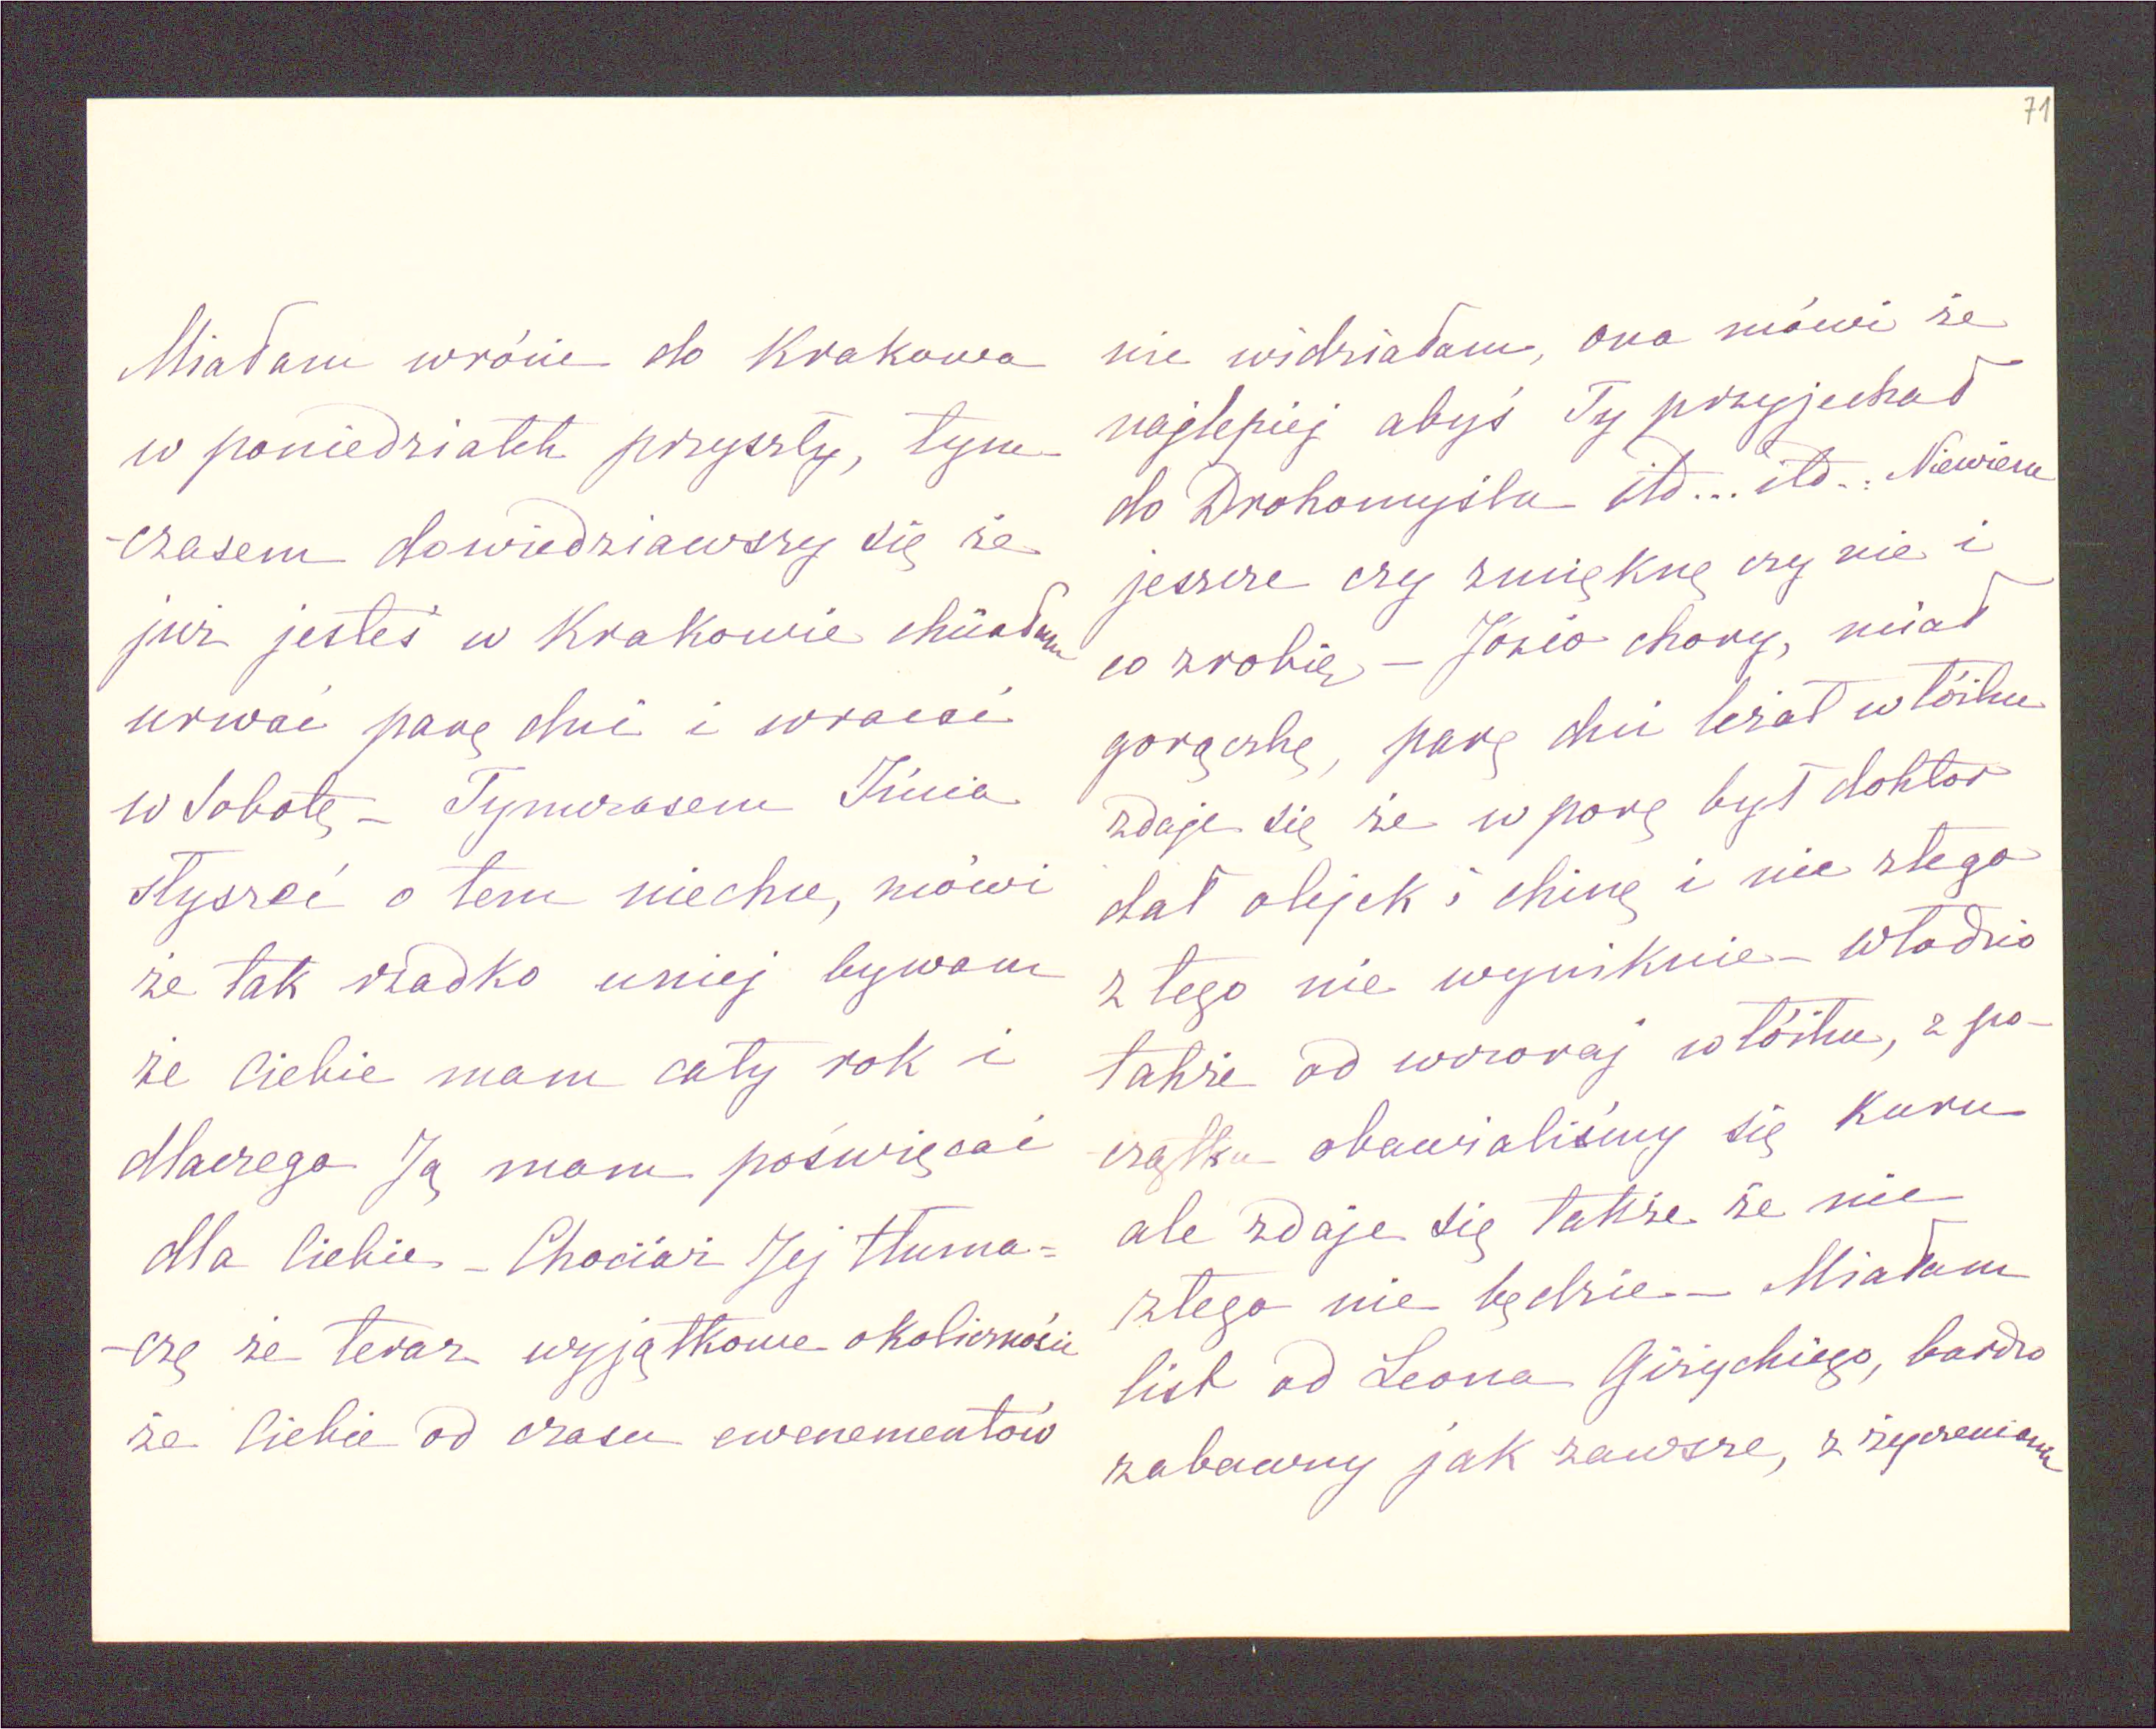 71
Miałam wrócić do Krakowa
w poniedziałek przyszły, tym-
-czasem dowiedziawszy się że
już jesteś w Krakowie chciałam
urwać parę dni i wracać
w Sobotę – Tymczasem Inia
słyszeć o tem niechce, mówi
że tak rzadko uniej bywam
że Ciebie mam cały rok i
dlaczego Ją mam poświęcać
dla Ciebie – Chociaż Jej tłuma=
-czę że teraz wyjątkowe okoliczności
że Ciebie od czasu ewenementów
nie widziałam, ona mówi że
najlepiej abyś Ty przyjechał
do Drohomyśla itd... itd.. Niewiem
jeszcze czy zmięknę czy nie i
co zrobię – Józio chory, miał
gorączkę, parę dni leżał w łóżku
zdaje się że w porę był doktor
dał olejek i chinę i nic złego
z tego nie wyniknie – Władzio
także od wczoraj w łóżku, z po-
-czątku obawialiśmy się Kuru
ale zdaje się także że nic
złego nie będzie – Miałam
list od Leona Giżyckiego, bardzo
zabawny jak zawsze, z życzeniami